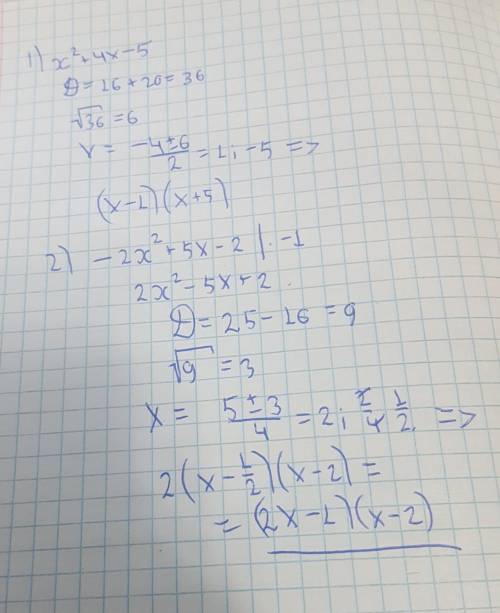 1) x²+4x-5
D=16+20=36
√36=6
x= -4±6/2 =1; -5 =>
(x-1)(x+5)
2) -2x²+5x-2 |·-1
2x²-5x+2
D=25-16=9
√9=3
x= 5±3/4 =2; 2/4 1/2 =>
2(x-1/2)(x-2)=
=(2x-1)(x-2)